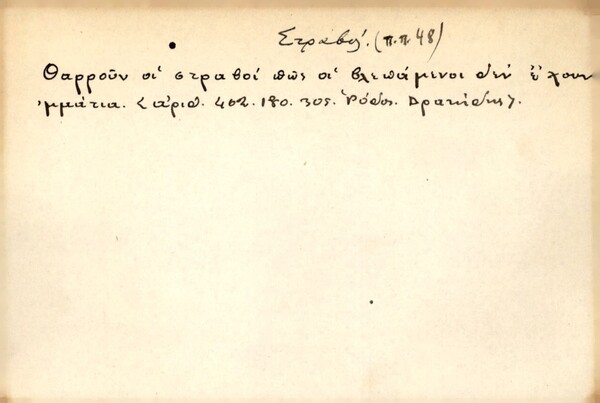 Στραβός. (π.π. 48)
Θαρροῦν οἱ στραβοί πῶς οἱ βλεπάμενοι δέν ἔχουν
μμάτια. < ἀριθ. 402. 180. 305. Ῥόδος. Δρακίδης >.